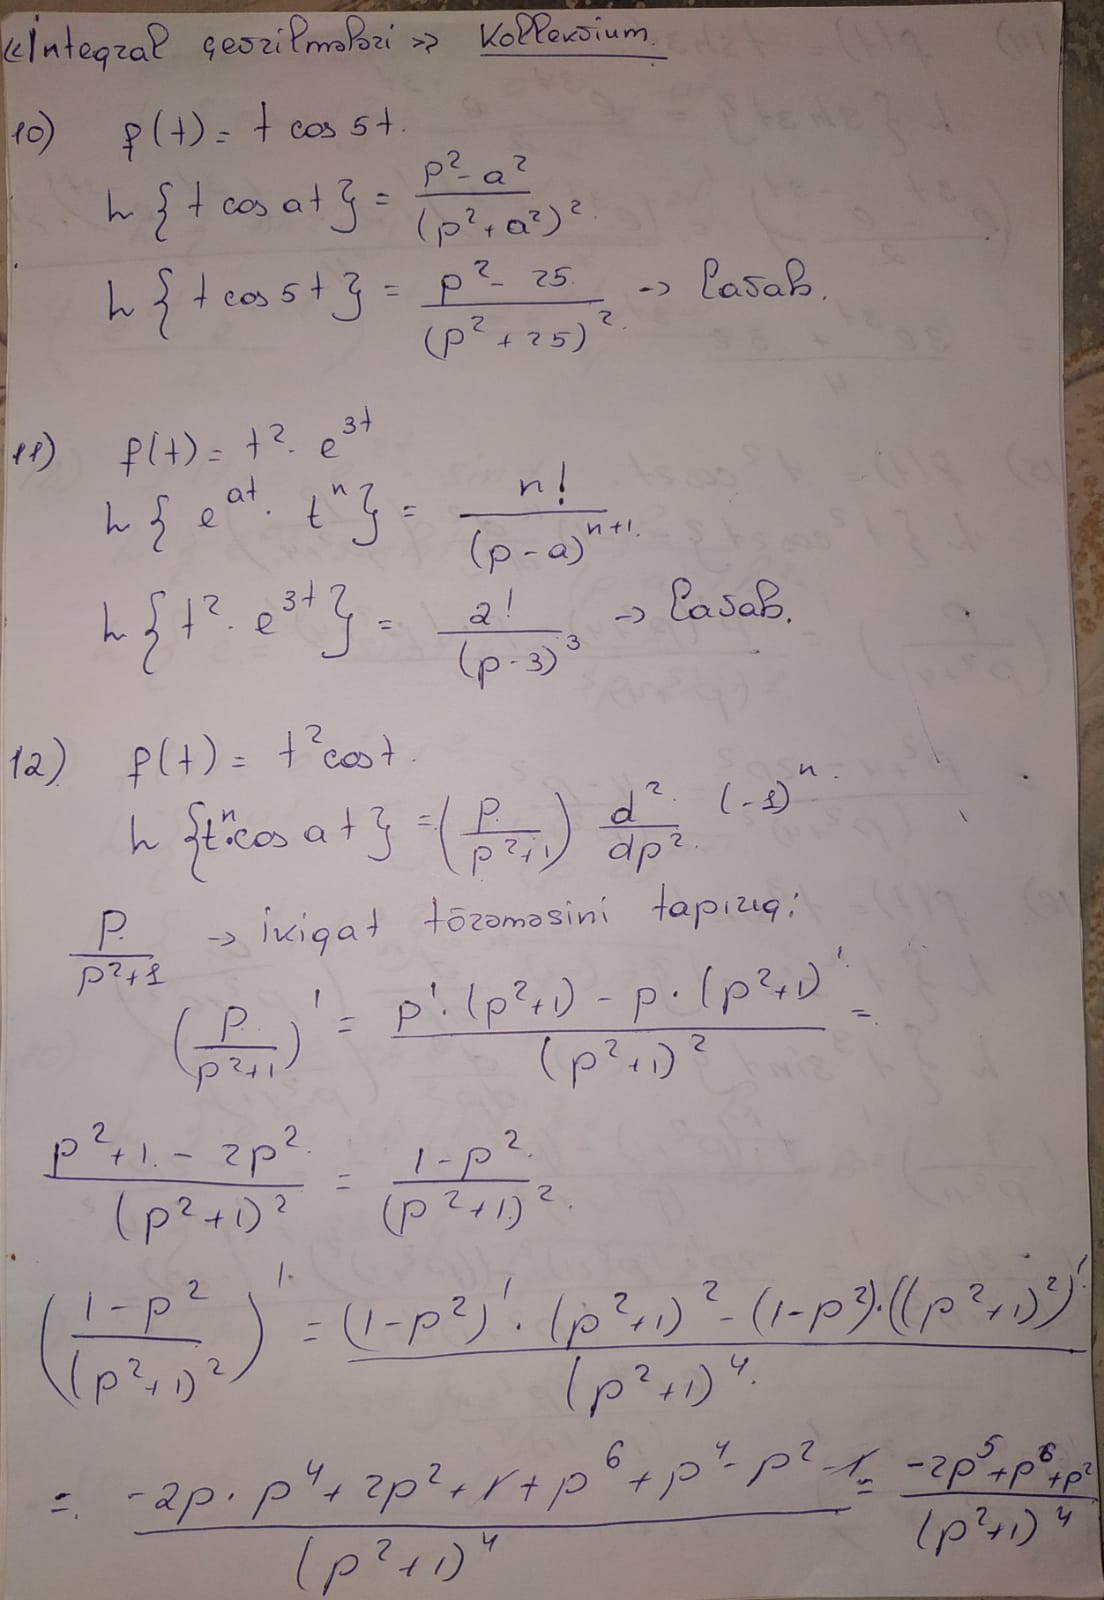 «İnteqral çevrilmələri» Kollekvium.
10) f(t) = t cos 5t.
L { t cos at } = (p² - a²) / (p² + a²)².
L { t cos 5t } = (p² - 25) / (p² + 25)². → Cavab.
11) f(t) = t² · e^(3t)
L { e^(at) · t^n } = n! / (p - a)^(n+1).
L { t² · e^(3t) } = 2! / (p - 3)³ → Cavab.
12) f(t) = t² cos t.
L { t^n · cos at } = (p / (p² + 1)) d² / dp² . (-1)^n .
p / (p² + 1) → ikiqat törəməsini tapırıq:
(p / (p² + 1))' = (p' · (p² + 1) - p · (p² + 1)') / (p² + 1)² =
(p² + 1 - 2p²) / (p² + 1)² = (1 - p²) / (p² + 1)².
((1 - p²) / (p² + 1)²)' = ((1 - p²)' · (p² + 1)² - (1 - p²) · ((p² + 1)²)') / (p² + 1)⁴.
= (-2p · p⁴ + 2p² + 1 + p⁶ + p⁴ - p² - 1) / (p² + 1)⁴ = (-2p⁵ + p⁶ + p²) / (p² + 1)⁴